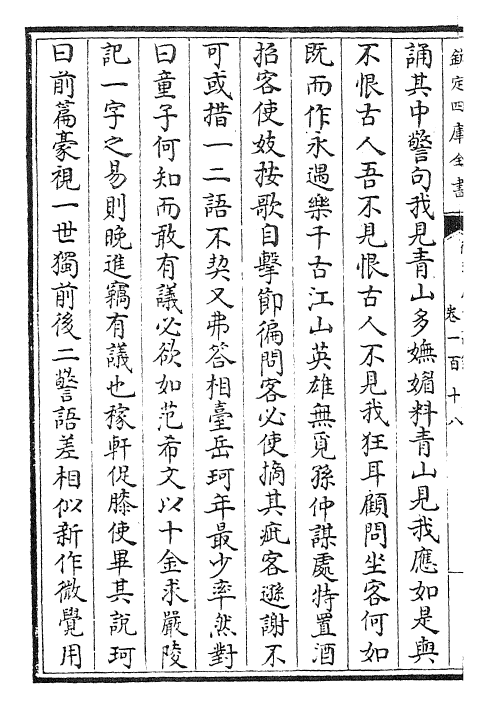 欽定四庫全書
卷一百十八
誦其中警句我見青山多嫵媚料青山見我應如是與
不恨古人吾不見恨古人不見我狂耳顧問坐客何如
既而作永遇樂千古江山英雄無覓孫仲謀處特置酒
招客使妓按歌自擊節徧問客必使摘其疵客遜謝不
可或措一二語不契又弗答相臺岳珂年最少率然對
曰童子何知而敢有議必欲如范希文以十金求嚴陵
記一字之易則晚進竊有議也稼軒促膝使畢其說珂
曰前篇豪視一世獨前後二警語差相似新作微覺用